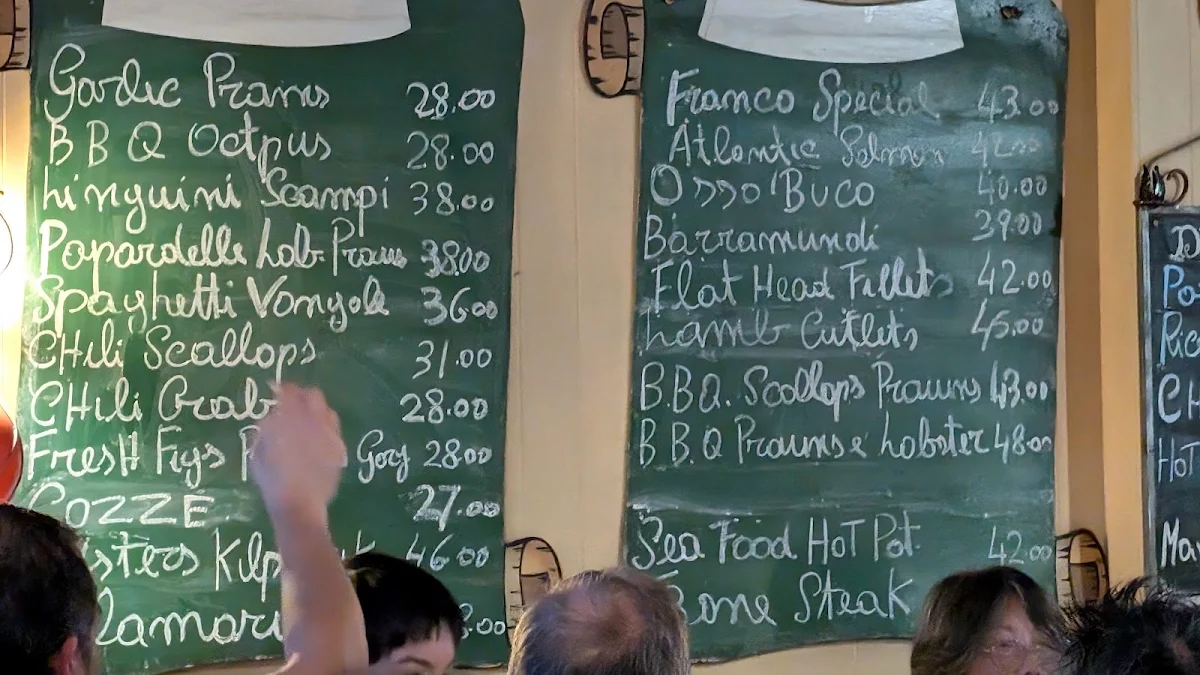 Garlic Prawns 28.00
B B Q Octpus 28.00
Linguini Scampi 38.00
Papardelle Lob Prawns 38.00
Spaghetti Vongole 36.00
CHili Scallops 31.00
CHili Crab 28.00
FresH Figs Gorg 28.00
COZZE 27.00
46.00
Franco Special 43.00
Atlantic Salmon 42.00
Osso Buco 40.00
Barramundi 39.00
Flat Head Fillets 42.00
Lamb Cutlets 45.00
B.B.Q. Scollops Prawns 43.00
B B.Q Prawns & Lobster 48.00
Sea Food HoT Pot 42.00
Bone Steak
HoT